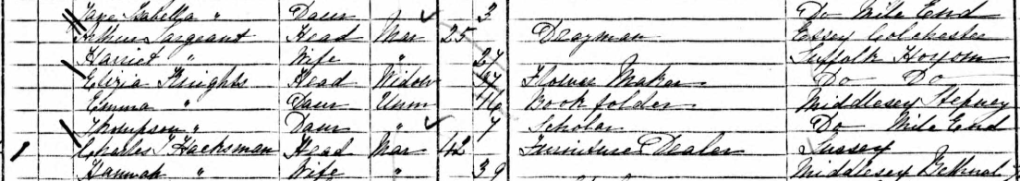 Jane Isabella " Daur 3 Do Mile End
Arthur Sargeant Head Mar 25 Drayman Essex Colchester
Harriet " Wife " 27 Suffolk Hoxom
Eliza Knights Head Widow 47 Flower Maker Do Do
Emma " Daur Unm 16 Book folder Middlesex Stepney
Thompson " Daur " 7 Scholar Do Mile End
1 Charles Hacksman Head Mar 42 Furniture Dealer Sussex
Hannah " Wife " 39 Middlesex Bethnal